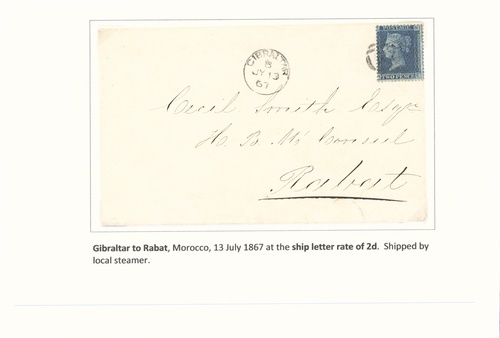 GIBRALTAR
B
JY 13
67
POSTAGE
TWO PENCE
Cecil Smith Esqr
H. B. M's Consul
Rabat
Gibraltar to Rabat, Morocco, 13 July 1867 at the ship letter rate of 2d. Shipped by
local steamer.